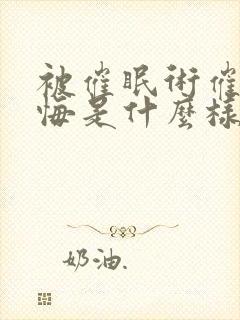 被催眠術催
悔是什麼樣
奶油.